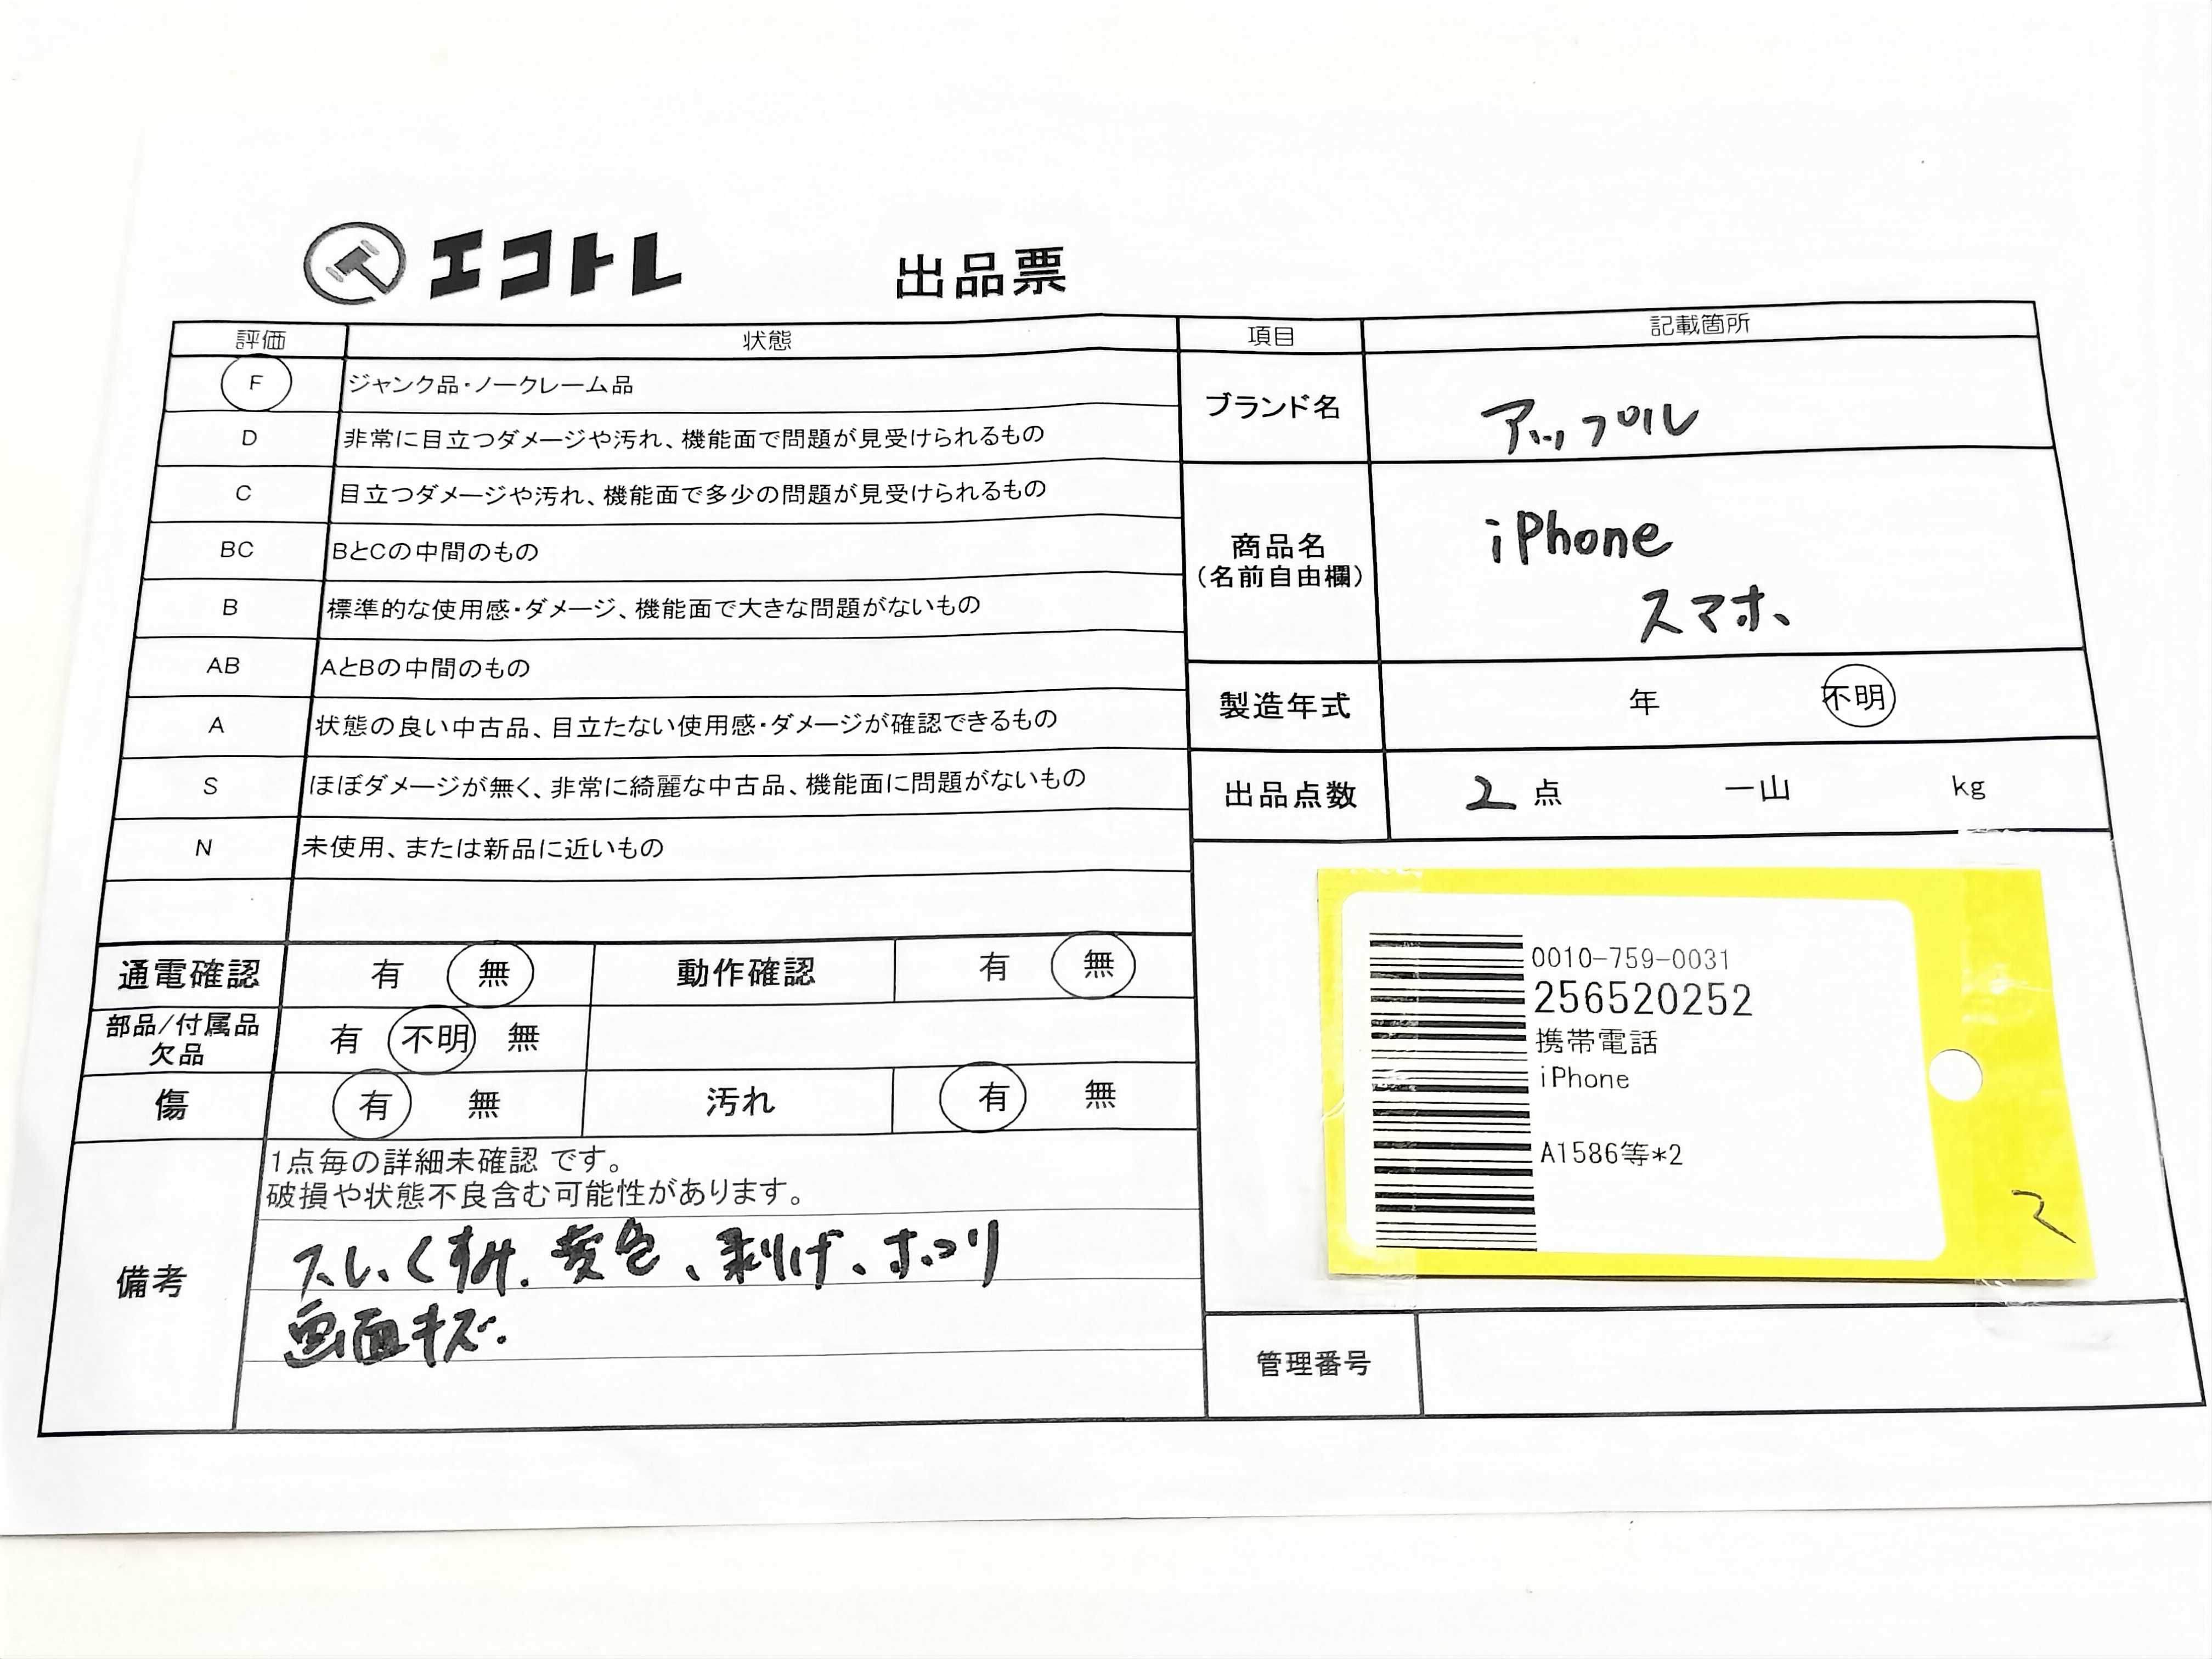 エコトレ
出品票
評価 状態
F ジャンク品・ノークレーム品
D 非常に目立つダメージや汚れ、機能面で問題が見受けられるもの
C 目立つダメージや汚れ、機能面で多少の問題が見受けられるもの
BC BとCの中間のもの
B 標準的な使用感・ダメージ、機能面で大きな問題がないもの
AB AとBの中間のもの
A 状態の良い中古品、目立たない使用感・ダメージが確認できるもの
S ほぼダメージが無く、非常に綺麗な中古品、機能面に問題がないもの
N 未使用、または新品に近いもの
通電確認 有 無 動作確認 有 無
部品/付属品
欠品
有 不明 無
傷 有 無 汚れ 有 無
備考
1点毎の詳細未確認 です。
破損や状態不良含む可能性があります。
スレ、くすみ、変色、剥げ、ホコリ
画面キズ.
項目 記載箇所
ブランド名 アップル
商品名
(名前自由欄)
iPhone
スマホ、
製造年式 年 不明
出品点数 2 点 一山 kg
0010-759-0031
256520252
携帯電話
iPhone
A1586等*2
2
管理番号